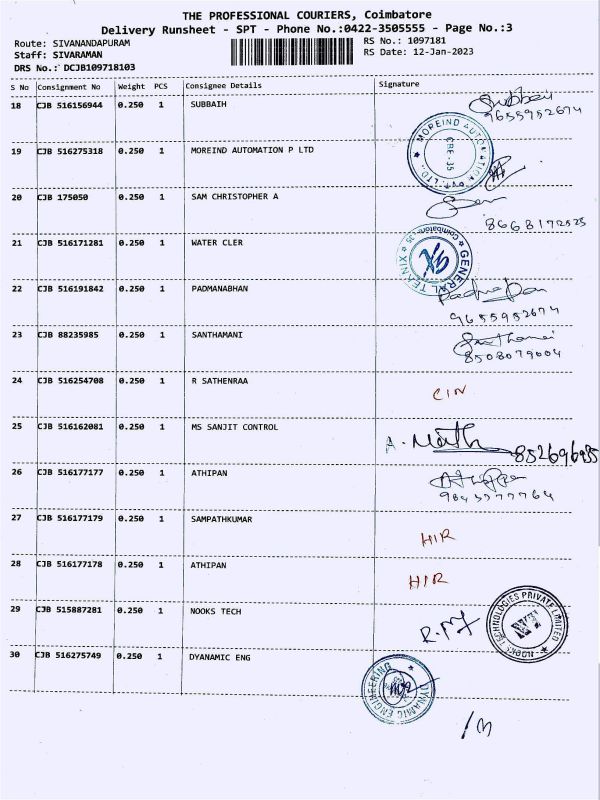 THE PROFESSIONAL COURIERS, Coimbatore
Delivery Runsheet - SPT - Phone No.:0422-3505555 - Page No.:3
Route: SIVANANDAPURAM
RS No.: 1097181
Staff: SIVARAMAN
RS Date: 12-Jan-2023
DRS No.: DCJB109718103
S No Consignment No Weight PCS Consignee Details Signature
18 CJB 516156944 0.250 1 SUBBAIH
9655952674
19 CJB 516275318 0.250 1 MOREIND AUTOMATION P LTD
MOREIND AUTOMATION PVT. LTD.,
CBE-35
20 CJB 175050 0.250 1 SAM CHRISTOPHER A
Sam
8668172525
21 CJB 516171281 0.250 1 WATER CLER
GENERAL TEKNIX
Coimbatore-35
22 CJB 516191842 0.250 1 PADMANABHAN
9655952674
23 CJB 88235985 0.250 1 SANTHAMANI
8508079004
24 CJB 516254708 0.250 1 R SATHENRAA
CIN
25 CJB 516162081 0.250 1 MS SANJIT CONTROL
26 CJB 516177177 0.250 1 ATHIPAN
27 CJB 516177179 0.250 1 SAMPATHKUMAR
HIR
28 CJB 516177178 0.250 1 ATHIPAN
HIR
29 CJB 515887281 0.250 1 NOOKS TECH
NOOKS TECHNOLOGIES PRIVATE LIMITED
30 CJB 516275749 0.250 1 DYANAMIC ENG
DYNAMIC ENGINEERING